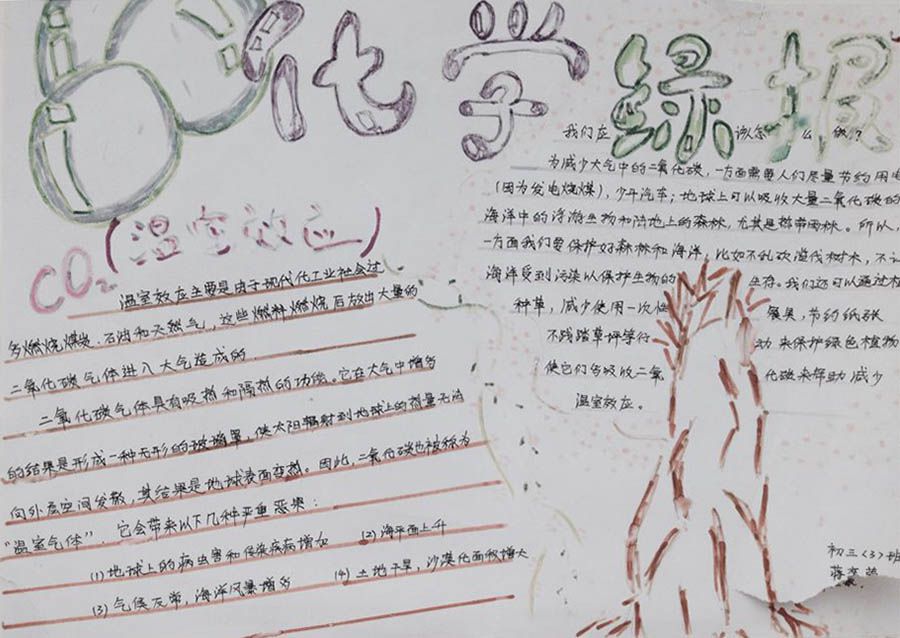 化学绿报
CO₂(温室效应)
温室效应主要是由于现代化工业社会过
多燃烧煤炭、石油和天然气，这些燃料燃烧后放出大量的
二氧化碳气体进入大气造成的。
二氧化碳气体具有吸热和隔热的功能。它在大气中增多
的结果是形成一种无形的玻璃罩，使太阳辐射到地球上的热量无法
向外层空间发散，其结果是地球表面变热。因此，二氧化碳也被称为
“温室气体”，它会带来以下几种严重恶果：
(1)地球上的病虫害和传染疾病增加 (2)海平面上升
(3)气候反常，海洋风暴增多 (4)土地干旱，沙漠化面积增大
我们应该怎么做？
为减少大气中的二氧化碳，一方面需要人们尽量节约用电
(因为发电烧煤)，少开汽车；地球上可以吸收大量二氧化碳的
海洋中的浮游生物和陆地上的森林，尤其是热带雨林。所以，
一方面我们要保护好森林和海洋，比如不乱砍滥伐树木，不让
海洋受到污染以保护生物的生存。我们还可以通过植
种草，减少使用一次性餐具，节约纸张
不践踏草坪等行动来保护绿色植物
使它们多吸收二氧化碳来帮助减少
温室效应。
初三(3)班